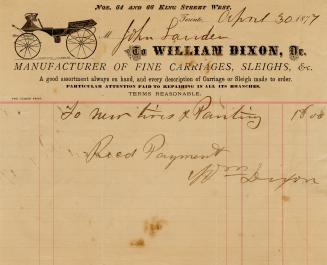 Nos. 64 and 66 King Street West.
Toronto, April 30 1877
M John Lauder
To WILLIAM DIXON, Dr.
MANUFACTURER OF FINE CARRIAGES, SLEIGHS, &c.
A good assortment always on hand, and every description of Carriage or Sleigh made to order.
PARTICULAR ATTENTION PAID TO REPAIRING IN ALL ITS BRANCHES.
TERMS REASONABLE.
To new tires & Painting 18 00
Recd Payment
Wm Dixon